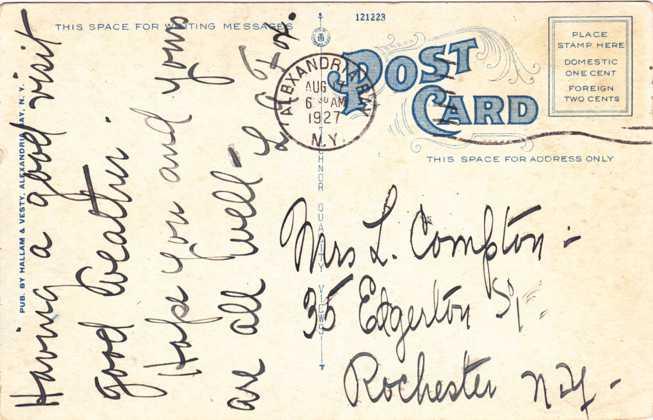 THIS SPACE FOR WRITING MESSAGES
121223
POST
CARD
PLACE
STAMP HERE
DOMESTIC
ONE CENT
FOREIGN
TWO CENTS
ALEXANDRIA BAY
AUG
6 30 AM
1927
N.Y.
THIS SPACE FOR ADDRESS ONLY
PUB. BY HALLAM & VESTY, ALEXANDRIA BAY, N. Y.
Having a good visit
good weather.
Hope you and yours
are all well-
L. Fox.
Mrs L. Compton-
35 Edgerton St
Rochester N.Y.-